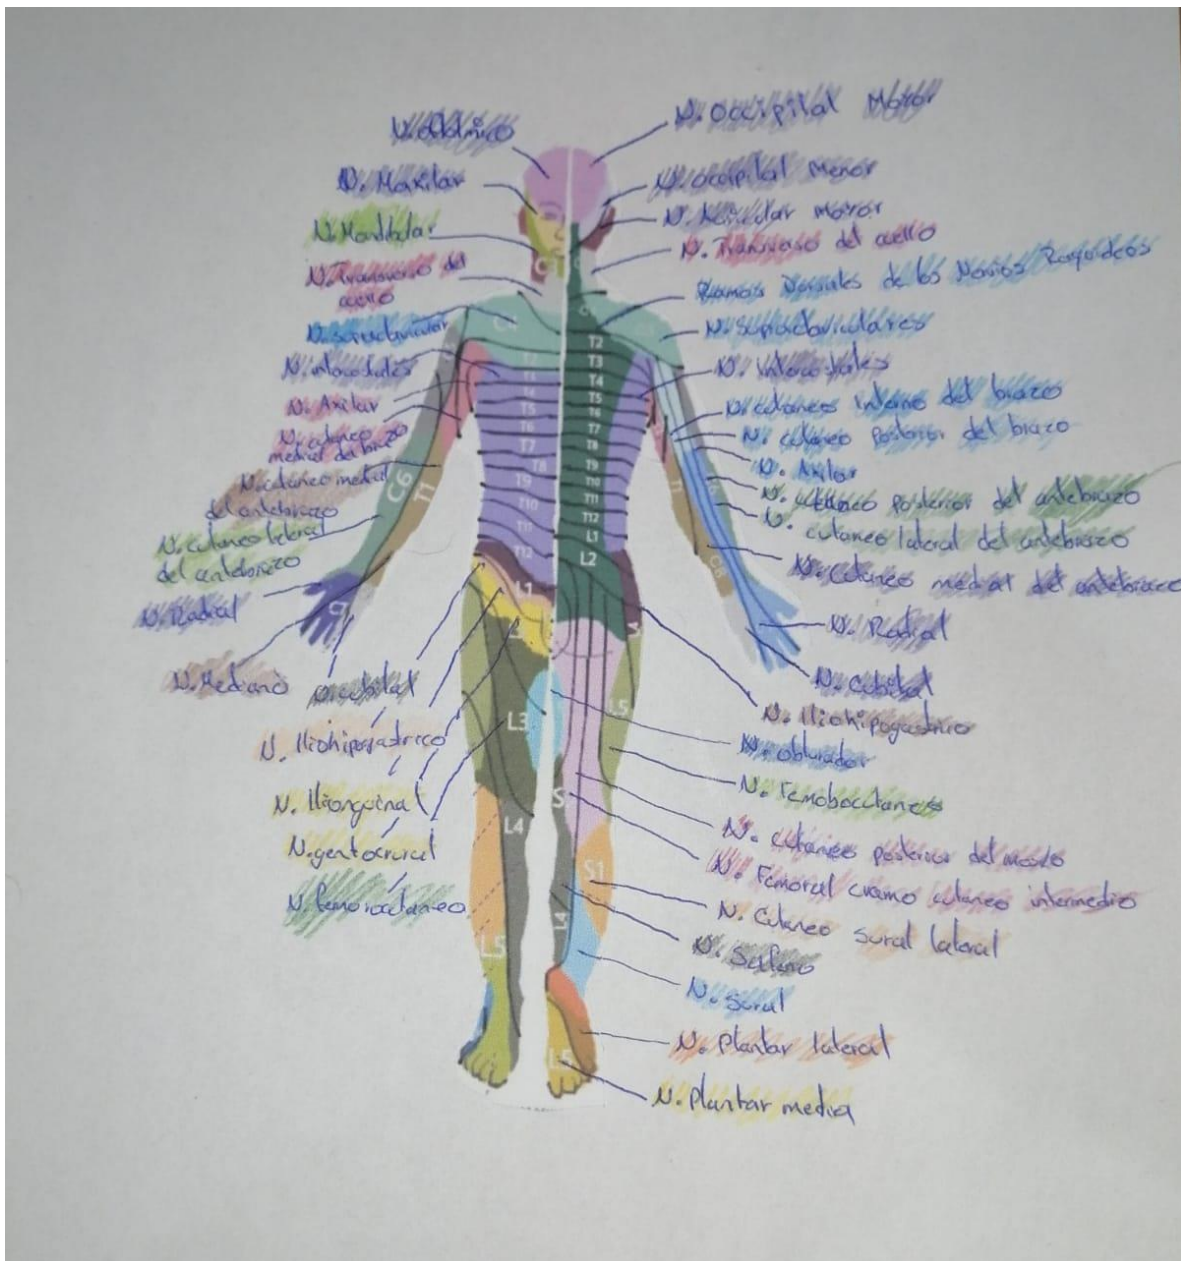 N. Oftálmico
N. Maxilar
N. Mandibular
N. Transverso del
cuello
N. supraclavicular
N. intercostales
N. Axilar
N. cutaneo
medial del
N. cutáneo medial
del antebrazo
N. cutaneo lateral
del antebrazo
N. Radial
N. Mediano
N. cubital
N. Iliohipogastrico
N. Ilionguinal
N. gentocrural
N. femorocutaneo
N. Occipital Mayor
N. occipital Menor
N. Auricular mayor
N. Transverso del cuello
Ramos Dorsales de los Nervios Raquideos
N. Supraclaviculares
N. Intercostales
N. cutaneos interno del brazo
N. cutaneo Posterior del brazo
N. Axilar
N. cutaneo posterior del antebrazo
N. cutaneo lateral del antebrazo
N. Cutaneo medial del antebrazo
N. Radial
N. Cubital
N. Iliohipogastrico
N. obturador
N. Femobocutaneo
N. cutaneo posterior del muslo
N. Femoral cramo cutaneo intermedio
N. Cutaneo sural lateral
N. Safeno
N. sural
N. Plantar lateral
N. Plantar media
C4
T2
T5
T6
T7
T8
T9
T10
T11
T12
L1
C6
T1
C7
L3
L4
L5
T2
T3
T4
T5
T6
T7
T8
T9
T10
T11
T12
L1
L2
T1
C8
L5
S
S1
L4
L5